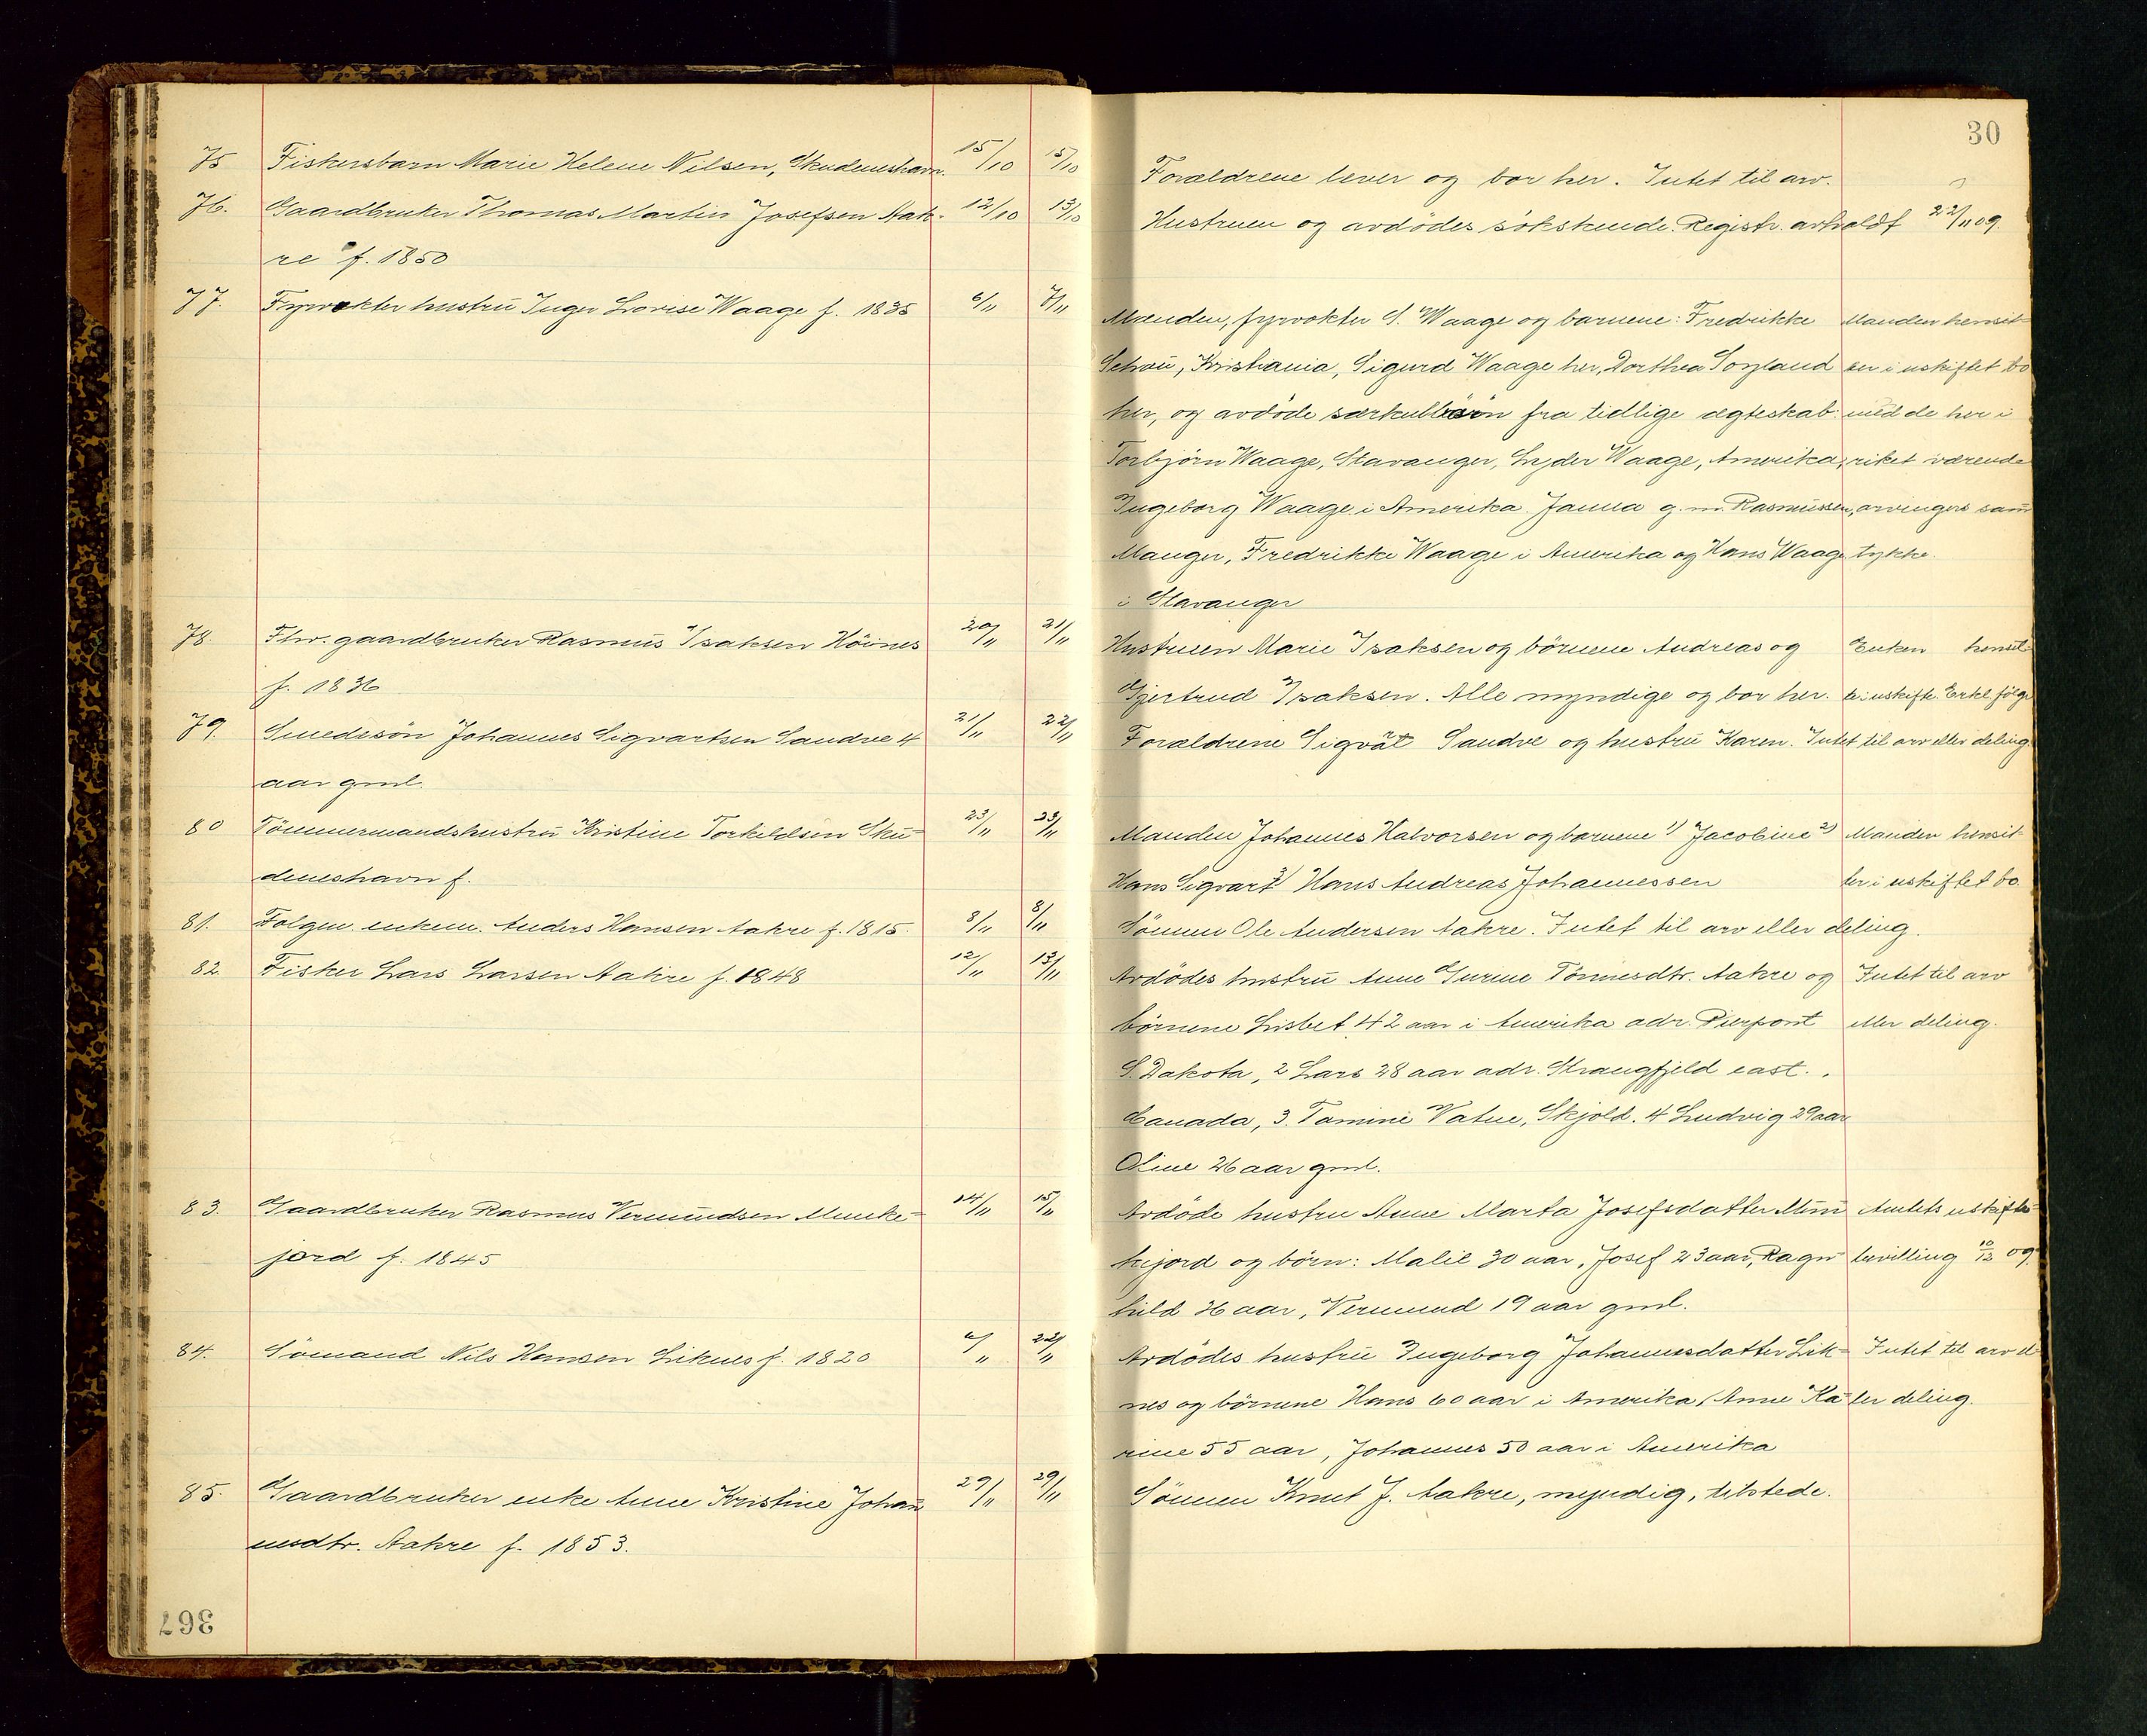 75 Fiskersbarn Marie Helene Nilsen, Skudeneshavn. 15/10 15/10
76. Gaardbruker Thomas Martin Josefsen Aak- 12/10 13/10
re f. 1850
77. Fyrvokter hustru Inger Lovise Waage f. 1835 6/11 7/11
78. Fhv. gaardbruker Rasmus Isaksen Höines 20/11 21/11
f. 1836
79. Smedssön Johannes Sigvartsen Sandve 4 21/11 22/11
aar gml.
80 Tömmermandshustru Kristine Torkildsen Sku- 23/11 23/11
deneshavn f.
81. Folgem. enkem. Anders Hansen Aakre f. 1815 8/11 8/11
82. Fisker Lars Larsen Aakre f. 1848 12/11 13/11
83. Gaardbruker Rasmus Vermundsen Munke- 14/11 15/11
jord f. 1845
84. Sömand Nils Hansen Liknes f. 1820 6/11 22/11
85. Gaardbruker enke Anne Kristine Johan 29/11 29/11
nesdtr. Aakre f. 1853.
367
30
Forældrene lever og bor her. Intet til arv.
Hustruen og avdödes söskende. Registr. avholdt 22/11 09.
Manden, fyrvokter S. Waage og barnene: Fredrikke Manden hensit-
Schou, Kristiania, Sigurd Waage her, Dorthea Sørland ter i uskiftet bo
her, og avdöde særkulbörn fra tidlige ægteskab med de her i
Torbjörn Waage, Stavanger, Lyder Waage, Amerika, riket værende
Ingeborg Waage i Amerika. Janna g. m. Rasmussen, arvingers sam
Manger, Fredrikke Waage i Amerika og Hans Waage tykke.
i Stavanger
Hustruen Marie Isaksen og börnene Andreas og Enken hensit-
Gjertrud Isaksen. Alle myndige og bor her. te i uskifte. Erkl. följer
Forældrene Sigvat Sandve og hustru Karen. Intet til arv eller deling.
Manden Johannes Halvorsen og barnene 1) Jacobine 2) Manden hensit-
Hans Sigvart 3) Hans Andreas Johannessen ter i uskiftet bo.
Sönnen Ole Andersen Aakre. Intet til arv eller deling.
Avdödes hustru Anne Gurine Tönnesdtr. Aakre og Intet til arv
börnene Lisbet 42 aar i Amerika adr. Pierpont eller deling.
S. Dakota, 2 Lars 28 aar adr. Strangfjeld east.
Canada, 3. Tomine Vatne, Skjold. 4 Ludvig 29 aar
Oline 26 aar gml.
Avdöde hustru Anne Marta Josefsdatter Mun Amtets uskifte-
kejord og börn: Malie 30 aar, Josef 23 aar, Ragn- bevilling 10/12 09.
hild 26 aar, Vermund 19 aar gml.
Avdödes hustru Ingeborg Johannesdatter Lik- Intet til arv el-
nes og börnene Hans 60 aar i Amerika, Anne Ka- ler deling.
rine 55 aar, Johannes 50 aar i Amerika
Sönnen Knut J. Aakre, myndig, tilstede.